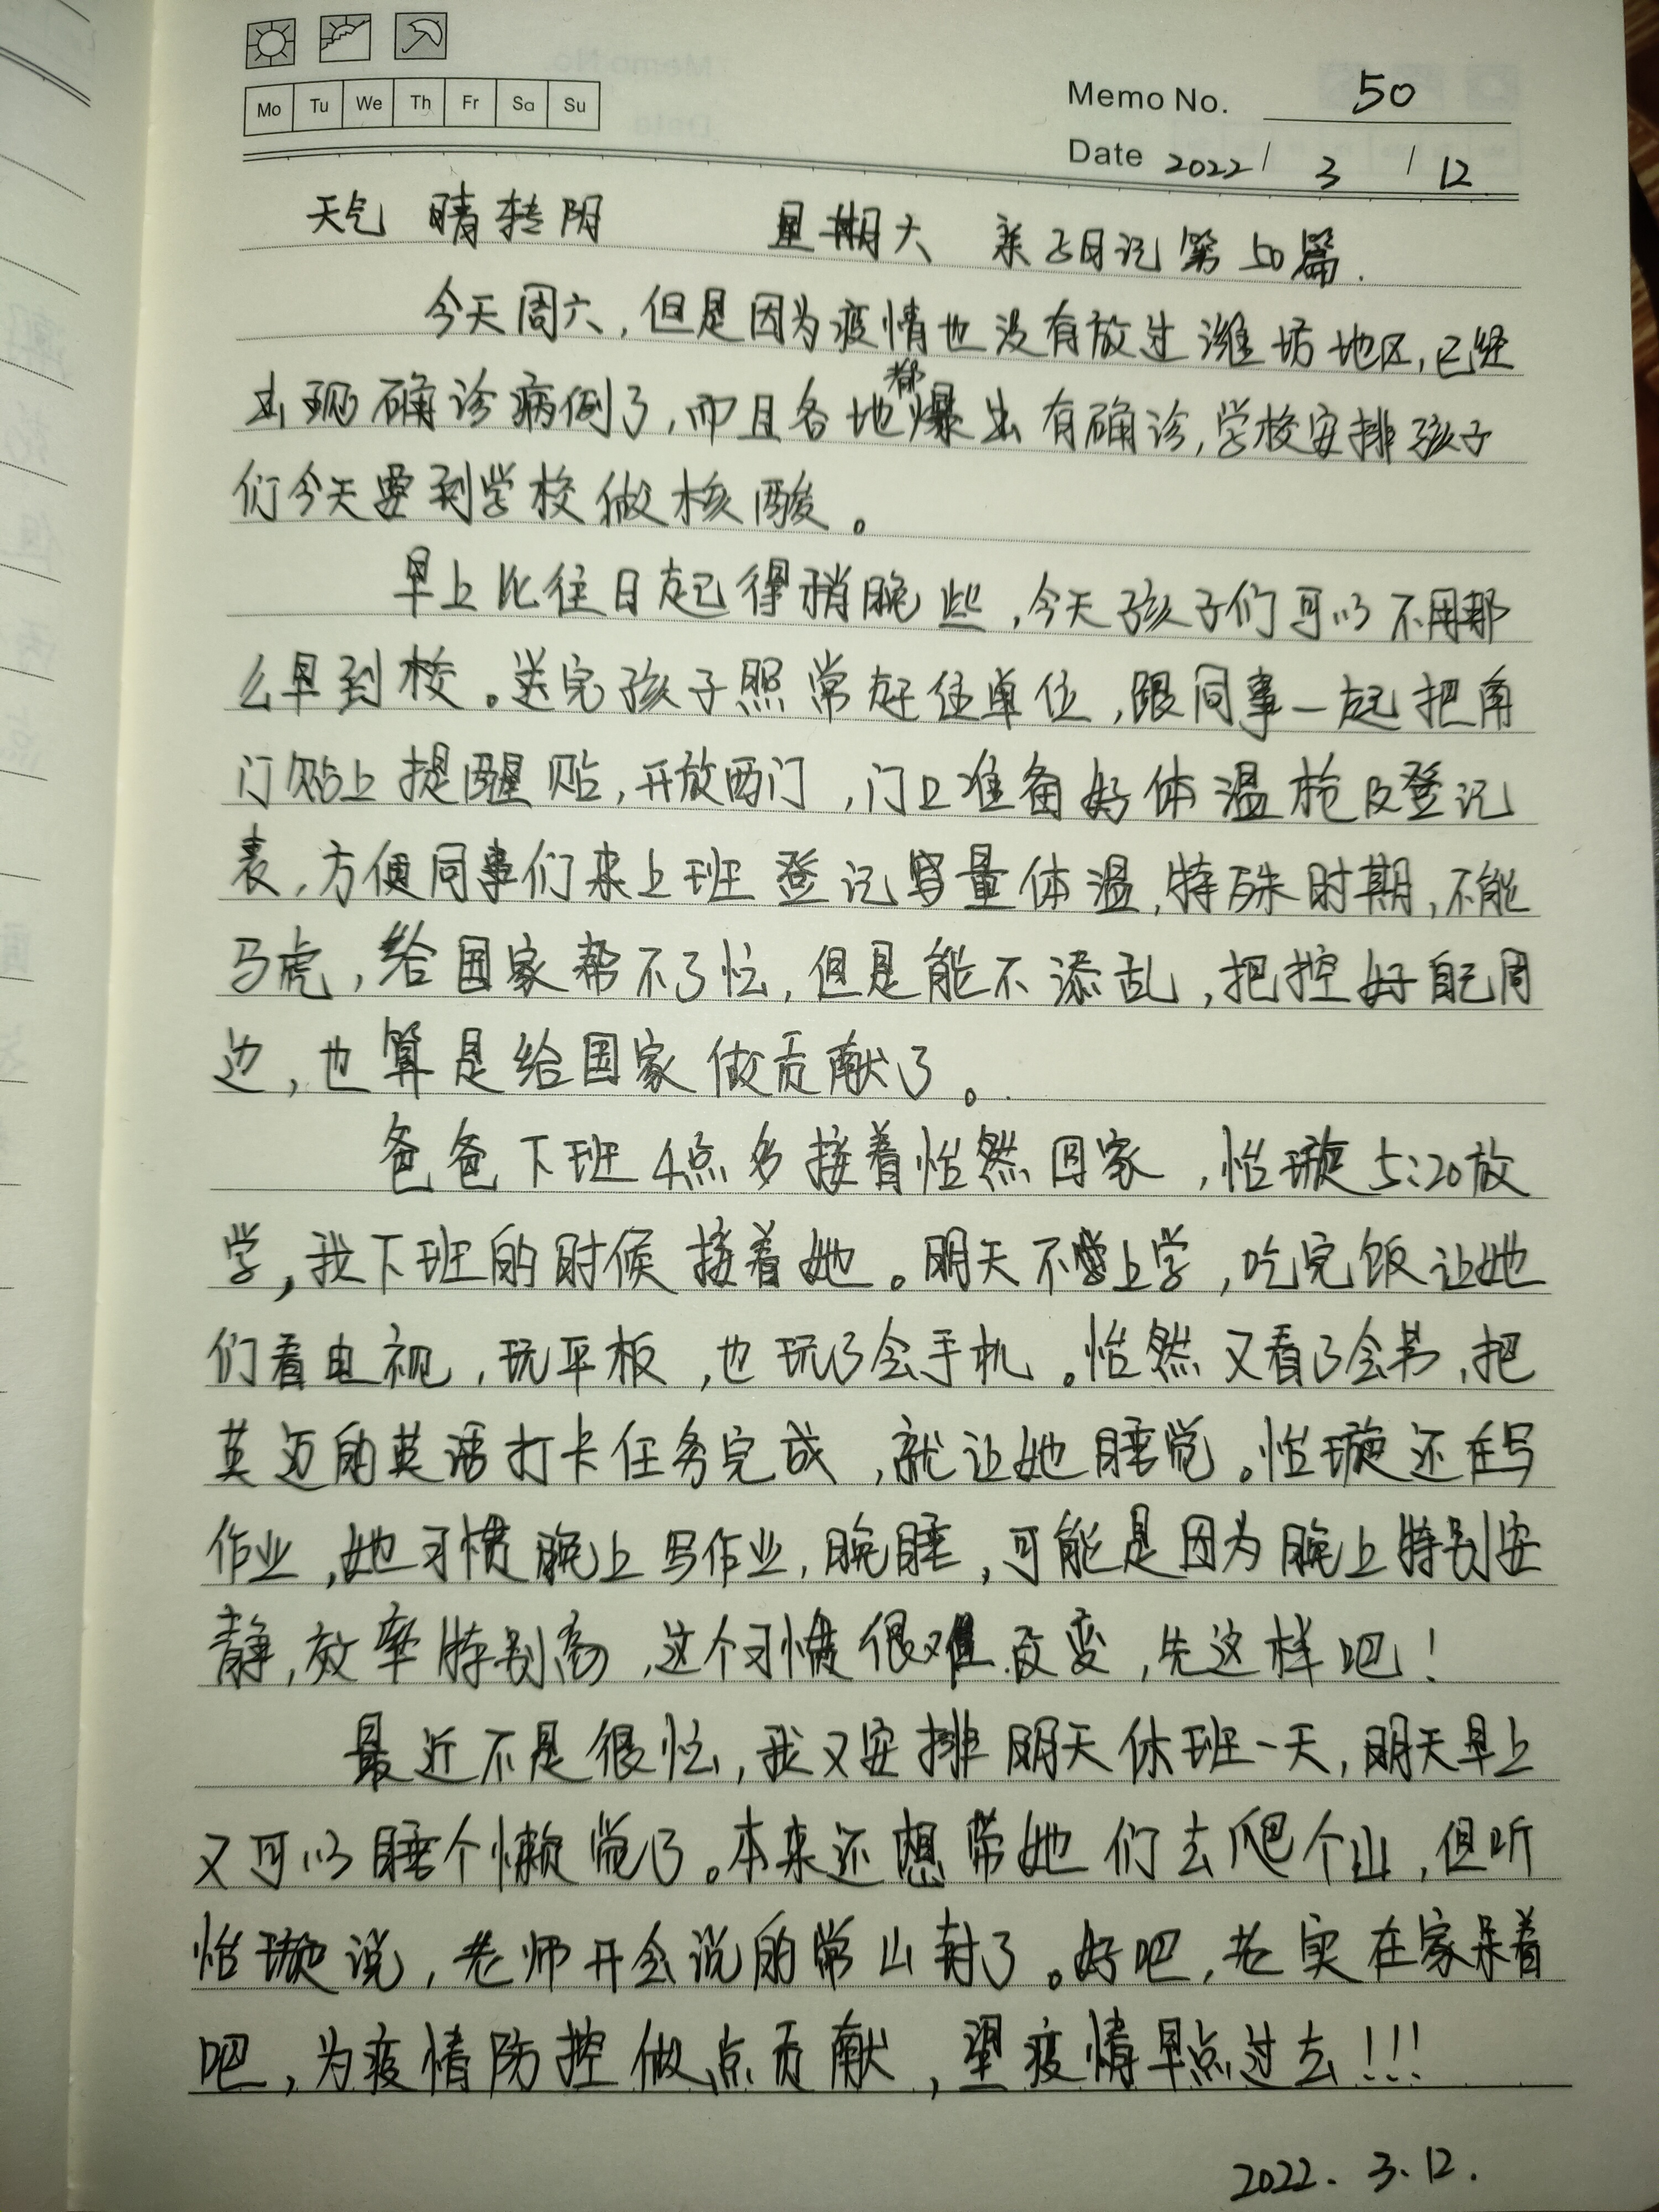 Mo Tu We Th Fr Sa Su
Memo No. 50
Date 2022 / 3 / 12
天气 晴转阴 星期六 亲子日记第50篇.
今天周六,但是因为疫情也没有放过潍坊地区,已经
出现确诊病例了,而且各地都爆出有确诊,学校安排孩子
们今天要到学校做核酸。
早上比往日起得稍晚些,今天孩子们可以不用那
么早到校。送完孩子照常赶往单位,跟同事一起把南
门贴上提醒贴,开放西门,门口准备好体温枪及登记
表,方便同事们来上班登记写量体温,特殊时期,不能
马虎,给国家帮不了忙,但是能不添乱,把控好自己周
边,也算是给国家做贡献了。
爸爸下班4点多接着怡然回家,怡璇5:20放
学,我下班的时候接着她。明天不上学,吃完饭让她
们看电视,玩平板,也玩了会手机。怡然又看了会书,把
英迈的英语打卡任务完成,就让她睡觉。怡璇还在写
作业,她习惯晚上写作业,晚睡,可能是因为晚上特别安
静,效率特别高,这个习惯很难改变,先这样吧!
最近不是很忙,我又安排明天休班一天,明天早上
又可以睡个懒觉了。本来还想带她们去爬个山,但听
怡璇说,老师开会说的常山封了。好吧,老实在家呆着
吧,为疫情防控做点贡献,望疫情早点过去!!!
2022. 3.12.